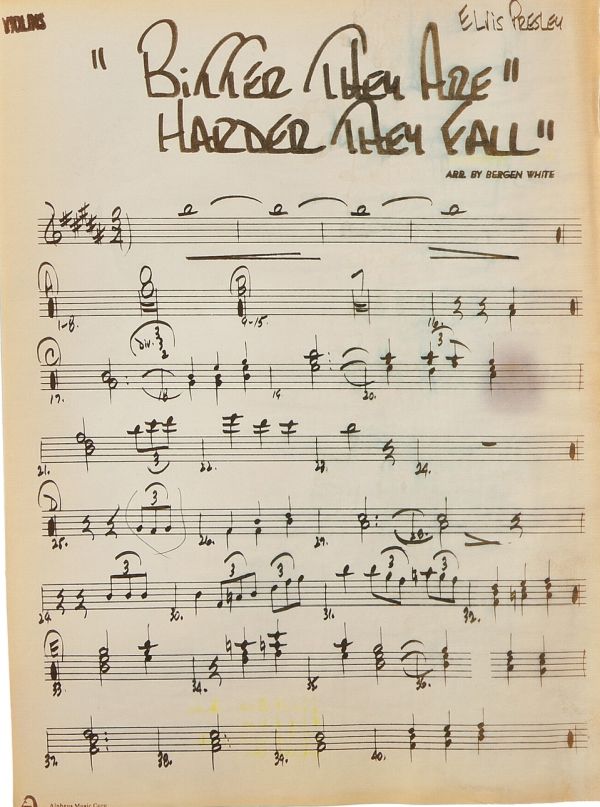 VIOLINS
ELVIS PRESLEY
" BITTER THEY ARE"
HARDER THEY FALL"
ARR. BY BERGEN WHITE
A 8 B 7
1-8. 9-15. 16. 3
C DIV. 3 3
17. 18. 19. 20.
3
21. 22. 23. 24.
D 3
25. 26. 27. 28.
3 3 3 3
29. 30. 31. 32.
E
33. 34. 35. 36.
37. 38. 39. 40.
Alpheus Music Corp.